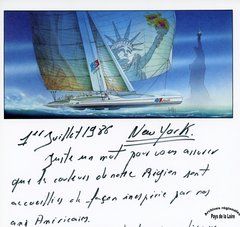 1er Juillet 1986 New York.
Juste un mot pour vous assurer
que les couleurs de notre Région sont
accueillies de façon inespérée par nos
amis Américains.
Archives régionales
Pays de la Loire